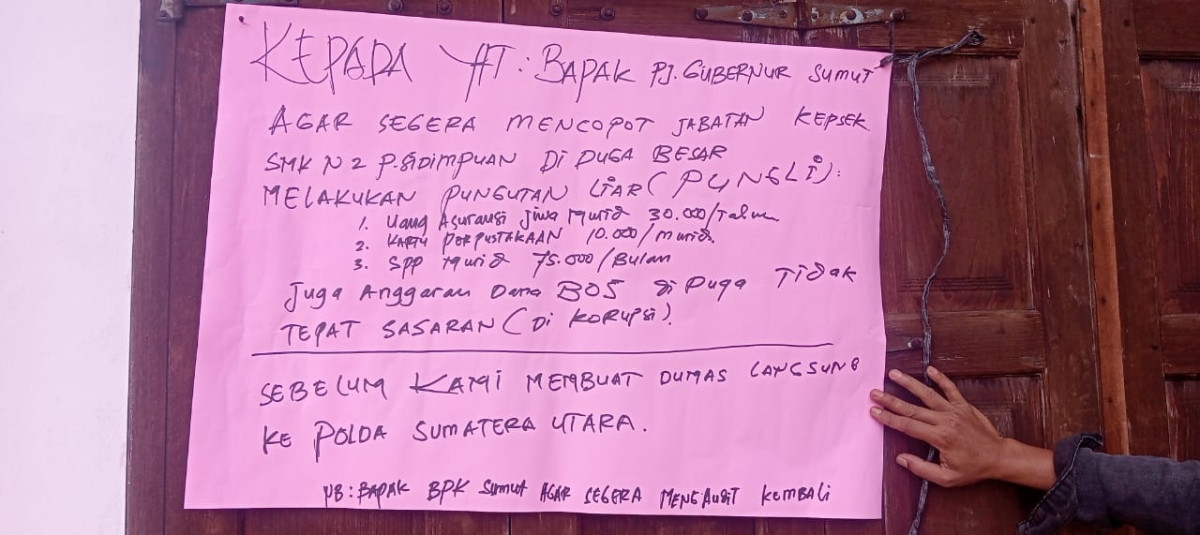 KEPADA YTT: BAPAK PJ. GUBERNUR SUMUT
AGAR SEGERA MENCOPOT JABATAN KEPSEK
SMK N 2 P.SIDIMPUAN DI DUGA BESAR
MELAKUKAN PUNGUTAN LIAR (PUNGLI):
1. Uang Asuransi Jiwa Murid 30.000/Tahun
2. KARTU PERPUSTAKAAN 10.000/Murid.
3. SPP Murid 75.000/Bulan
Juga Anggaran Dana BOS di Duga Tidak
TEPAT SASARAN (Di KORUPSi).
SEBELUM KAMI MEMBUAT DUMAS LANGSUNG
KE POLDA SUMATERA UTARA.
NB: BAPAK BPK Sumut AGAR SEGERA MENGAUDIT KEMBALI